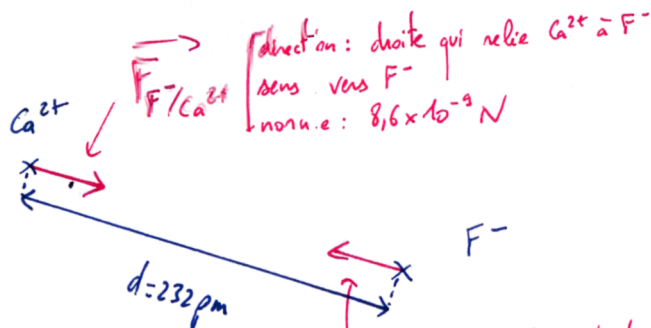 F F⁻/Ca²⁺
direction : droite qui relie Ca²⁺ à F⁻
sens vers F⁻
norme : 8,6 × 10⁻⁹ N
Ca²⁺
F⁻
d = 232 pm